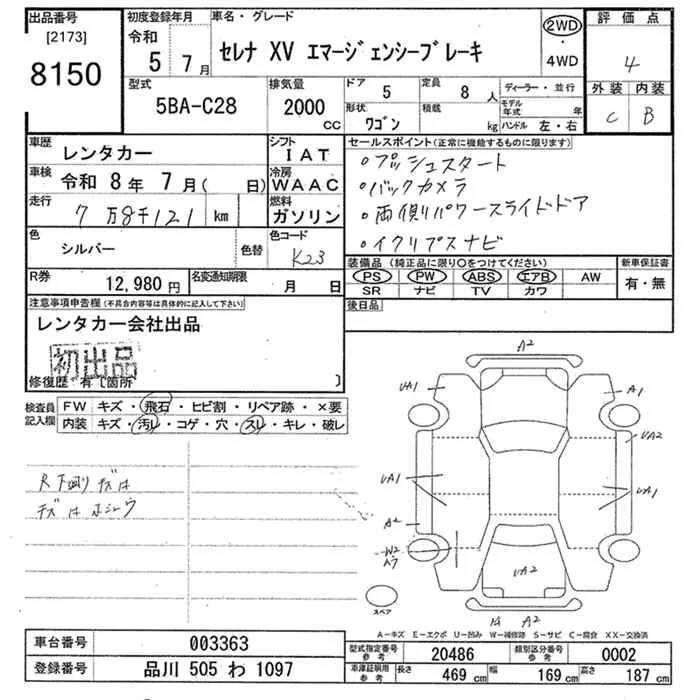 出品番号
[2173]
8150
初度登録年月
令和
5 7月
車名・グレード
セレナ XV エマージェンシーブレーキ
2WD
・
4WD
評価点
4
外装 内装
C B
型式
5BA-C28
排気量
2000
CC
ドア
5
形状
ワゴン
定員
8 人
積載
kg
ディーラー・並行
モデル
年式 年
ハンドル 左・右
車歴
レンタカー
車検
令和 8年 7月( 日)
走行
7万8千121 km
色
シルバー
色替
シフト
IAT
冷房
WAAC
燃料
ガソリン
色コード
K23
R券
12,980円
名変通知期限
月 日
セールスポイント(正常に機能するものに限ります)
・プッシュスタート
・バックカメラ
・両側パワースライドドア
・イクリプスナビ
装備品(純正品に限り〇をつけてください)
PS PW ABS エアB AW
SR ナビ TV カワ
新車保証書
有・無
後日品
注意事項申告欄(不具合内容等は具体的に記入して下さい)
レンタカー会社出品
初出品
修復歴 有〔箇所 〕
検査員
記入欄
FW キズ・飛石・ヒビ割・リペア跡・×要
内装 キズ・汚レ・コゲ・穴・スレ・キレ・破レ
R下廻りキズは
A2
UA1
A1
UA2
UA1
UA1
A2
W2
UA2
A2
スペア
A-キズ E-エクボ U-凹み W-補修跡 S-サビ C-腐食 XX-交換済
車台番号
003363
登録番号
品川 505 わ 1097
型式指定番号
参考
20486
類別区分番号
参考
0002
車庫証明用
参考
長さ
469 cm
幅
169 cm
高さ
187 cm